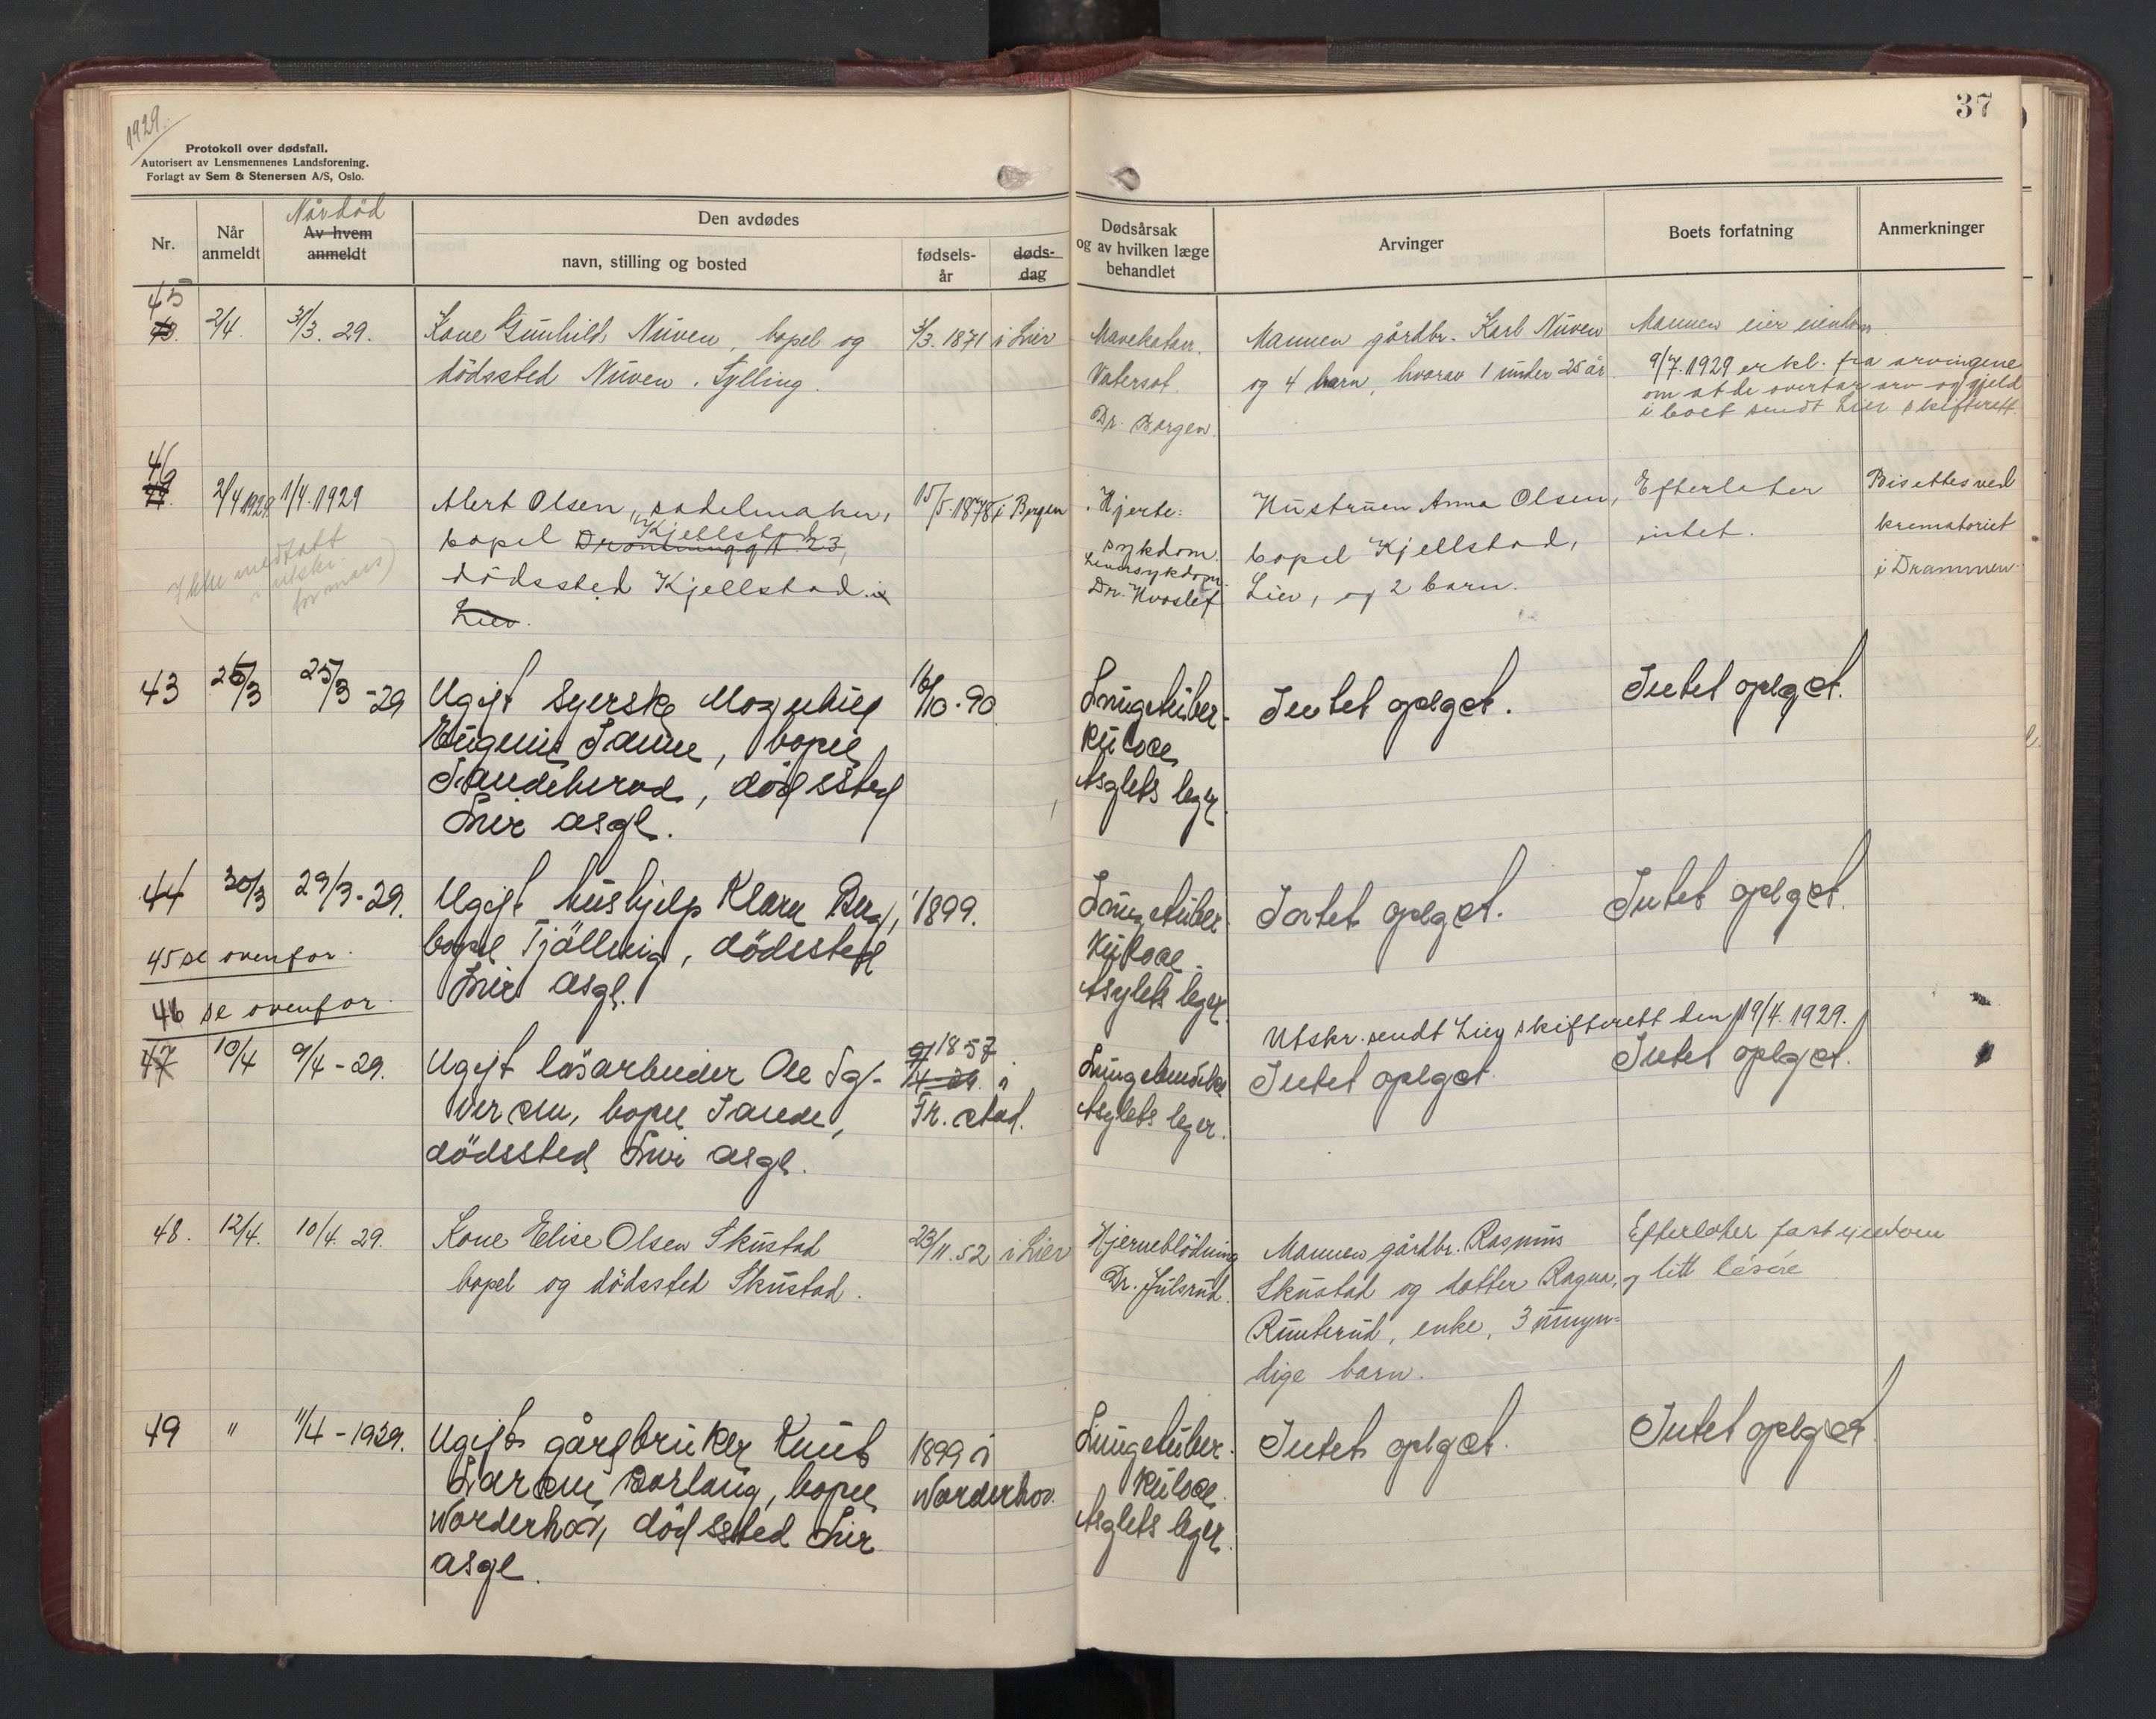 1929.
Protokoll over dødsfall.
Autorisert av Lensmennenes Landsforening.
Forlagt av Sem & Stenersen A/S, Oslo.
37
Nr.
Når anmeldt
Når død
Av hvem anmeldt
Den avdødes
navn, stilling og bosted
fødsels-år
døds-dag
Dødsårsak og av hvilken læge behandlet
Arvinger
Boets forfatning
Anmerkninger
45
2/4. 31/3. 29. Kone Gunhild Nüven, bopel og 3/3. 1871 i Lier
dödssted Nüven. Sylling.
Mavekatarr.
Vatersot.
Dr. Borgen.
Mannen gårdbr. Karl Nüven
og 4 barn, hvorav 1 ünder 25 år.
Mannen eier eiendom
9/7. 1929 erkl. fra arvingene
om at de overtar arv og gjeld
i boet sendt Lier skifterett.
46
2/4 1929. 1/4. 1929 Albert Olsen, sadelmaker, 15/5. 1878 i Bergen
Kjellstad
bopel Dronninggt. 23,
dödssted Kjellstad i
Lier.
Ikke medtatt
i utskr.
for mars)
Hjerte-
sykdom.
Leversykdom.
Dr. Kvoslef
Hüstrüen Anna Olsen,
bopel Kjellstad,
Lier, og 2 barn.
Efterlater
intet.
Bisettes ved
krematoriet
i Drammen.
43 26/3 25/3 - 29 Ugift syerske
Eugenie, bopel
, dödssted
Lier asyl.
16/10 - 90
Lungetüber-
külose
Asylets leger
Intet oplyst.
Intet oplyst.
44 30/3 29/3 - 29. Ugift hüshjelp Klara Berg, 1899.
bopel Tjölling, dödssted
Lier asyl.
Lüngetüber-
külose.
Asylets leger
Intet oplyst.
Intet oplyst.
45 se ovenfor.
46 se ovenfor.
Utskr. sendt Lier skifterett den 19/4. 1929.
47 10/4 9/4 - 29. Ugift lösarbeider Ole Sy-
versen, bopel Sande,
dödssted Lier asyl.
1857
i
Fr. stad.
Asylets leger.
Intet oplyst.
Intet oplyst.
48. 12/4. 10/4. 29. Kone Elise Olsen Sküstad 23/11. 52 i Lier
bopel og dödssted Sküstad.
Hjerneblödning
Dr. Jülsrüd.
Mannen gårdbr. Rasmüs
Sküstad og datter Ragna,
Rünterüd, enke, 3 ümyn-
dige barn.
Efterlater fast eiendom
og litt lösöre
49 " 11/4 - 1929. Ugift gårdbrüker Knüt
Larsen, bopel
Norderhov, dödssted Lier
asyl.
1899 i
Norderhov.
Lüngetüber-
külose.
Asylets leger.
Intet oplyst.
Intet oplyst.